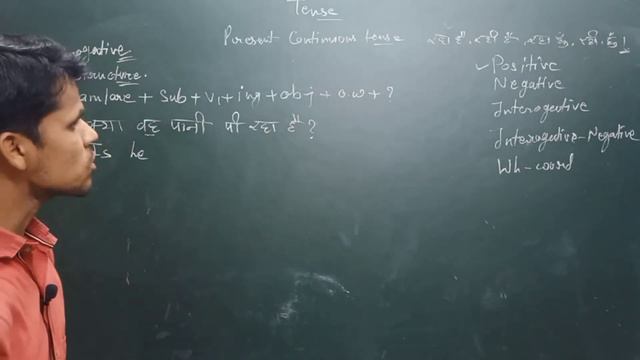 Tense
Present Continuous tense रहा है, रही है, रहा हूँ, रही हूँ।
Positive
Negative
Interogective
Interogective-Negative
Wh-word
Structure.
am/are + sub + V₁ + ing + obj + o.w + ?
क्या वह पानी पी रहा है?
Is he